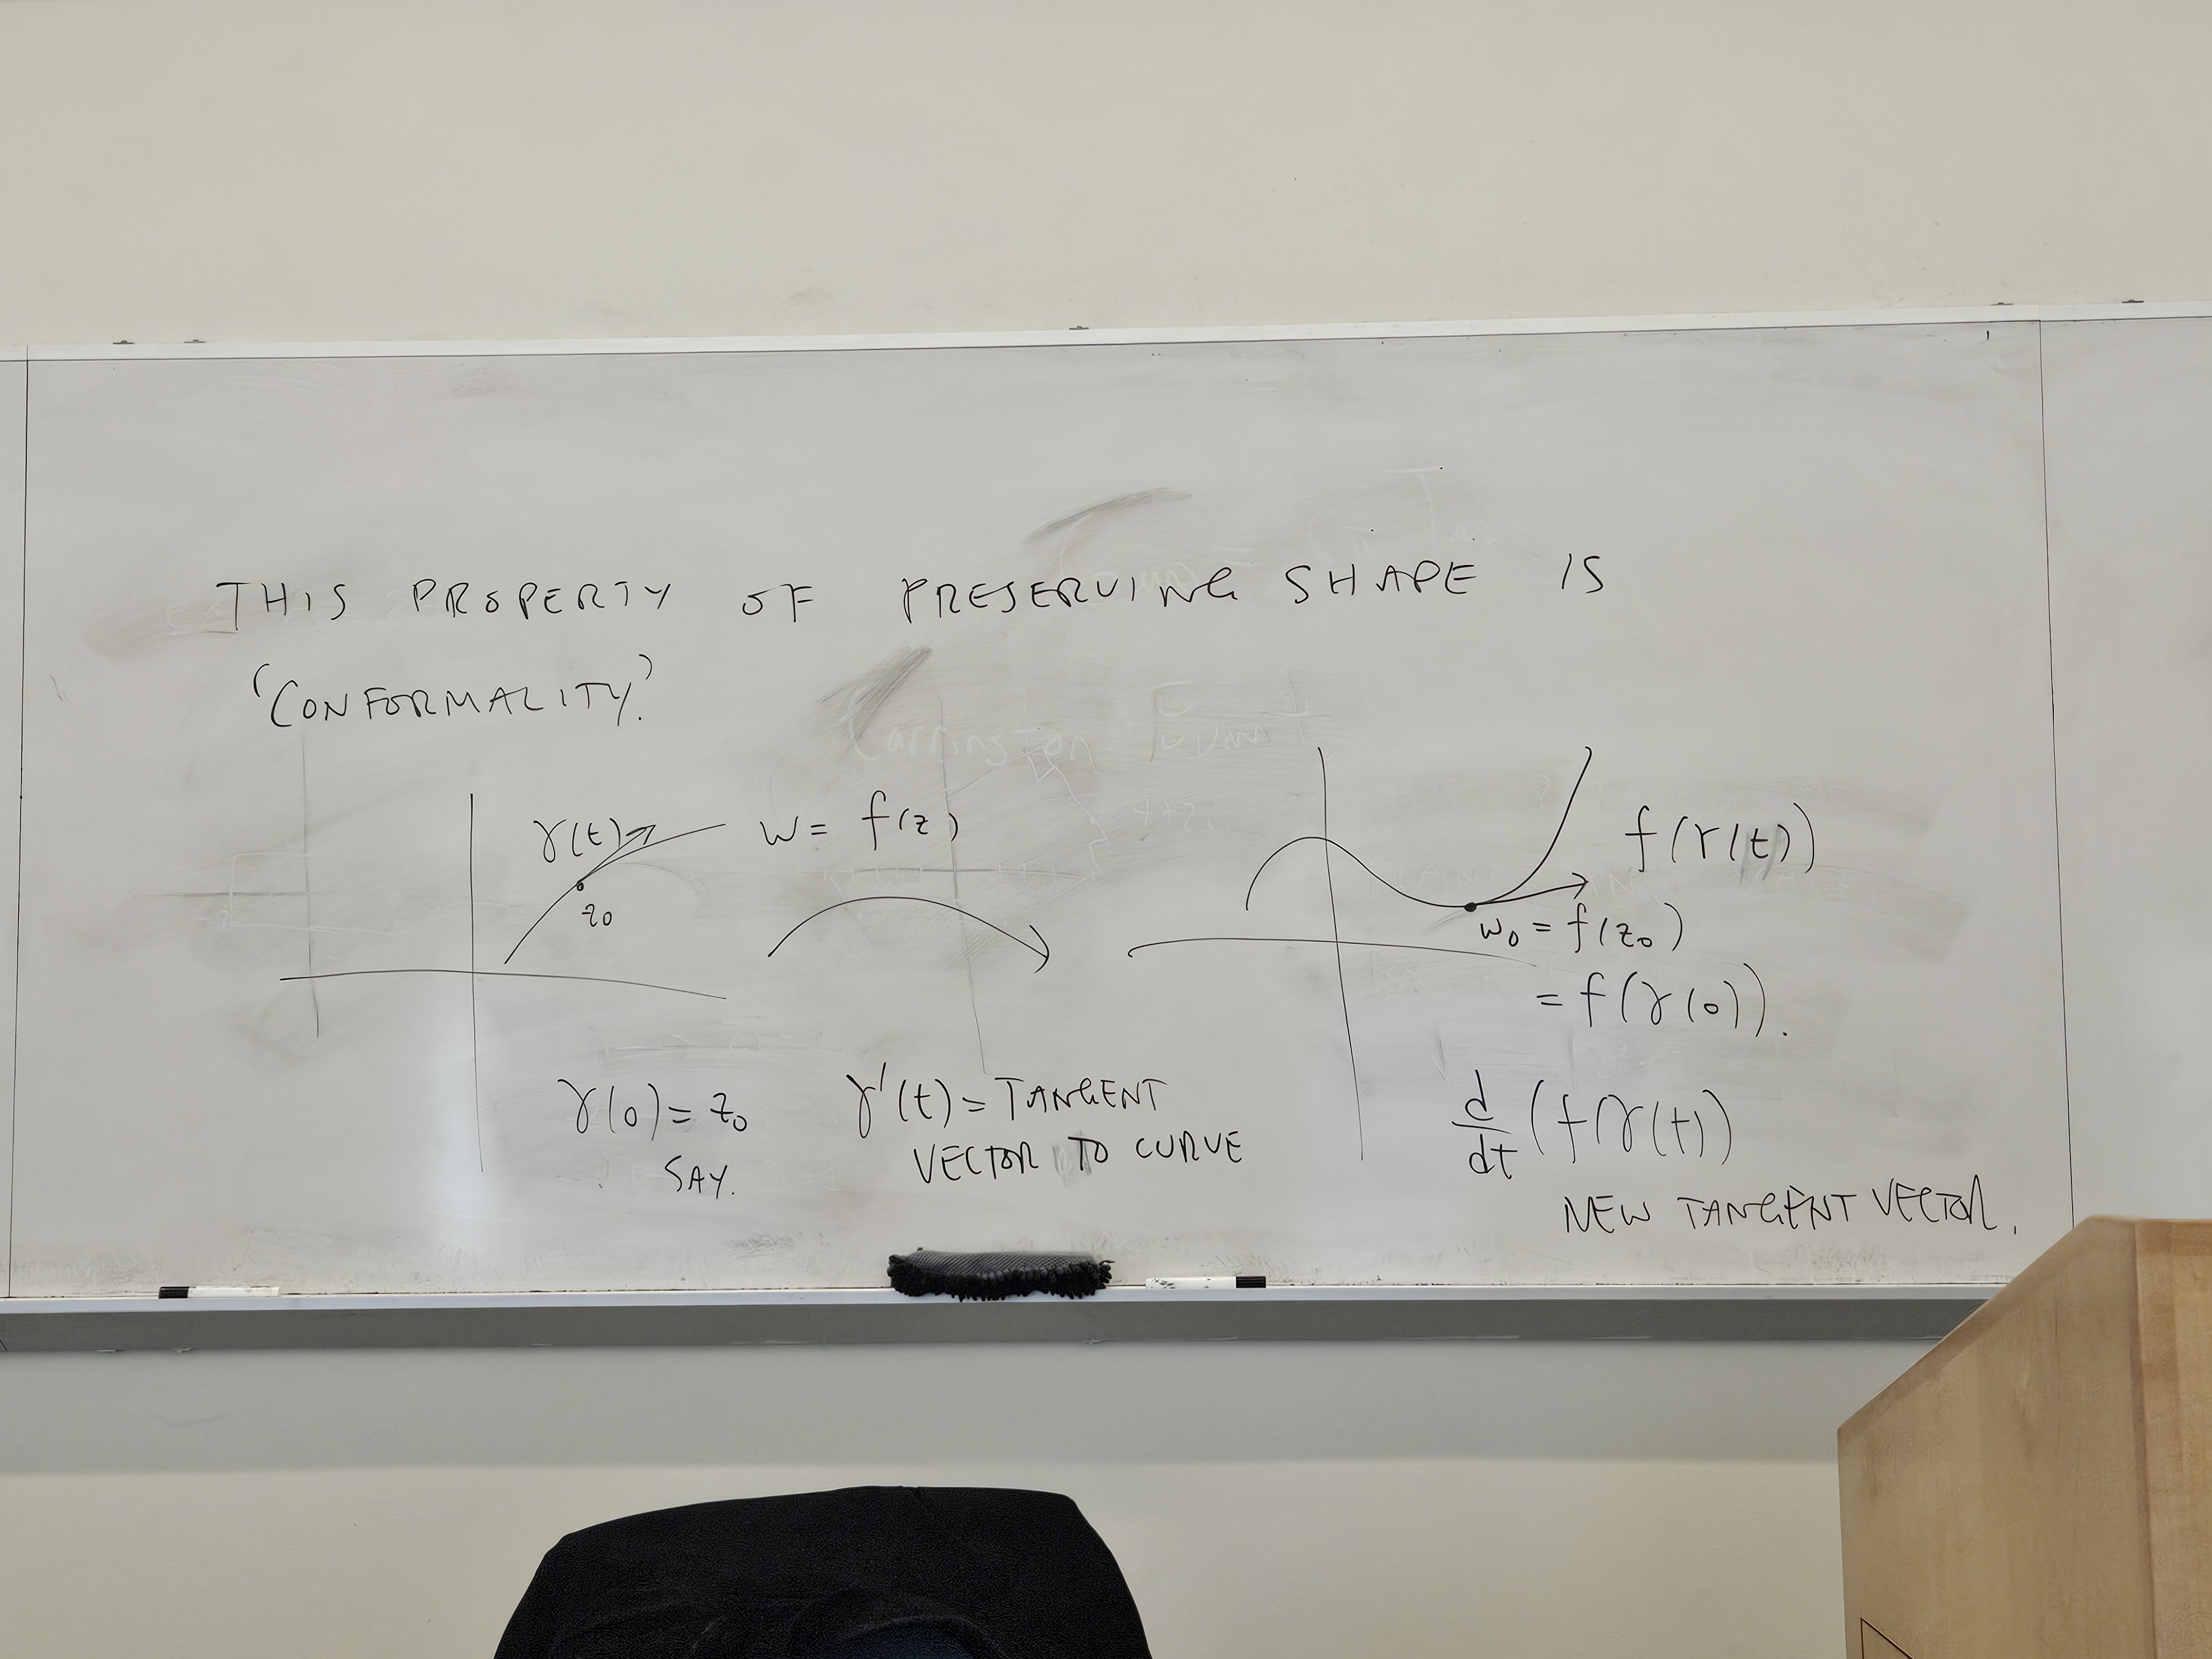 THIS PROPERTY OF PRESERVING SHAPE IS
'CONFORMALITY.'
γ(t)
z₀
w = f(z)
f(γ(t))
w₀ = f(z₀)
= f(γ(0)).
γ(0) = z₀
SAY.
γ'(t) = TANGENT
VECTOR TO CURVE
d/dt (f(γ(t))
NEW TANGENT VECTOR.